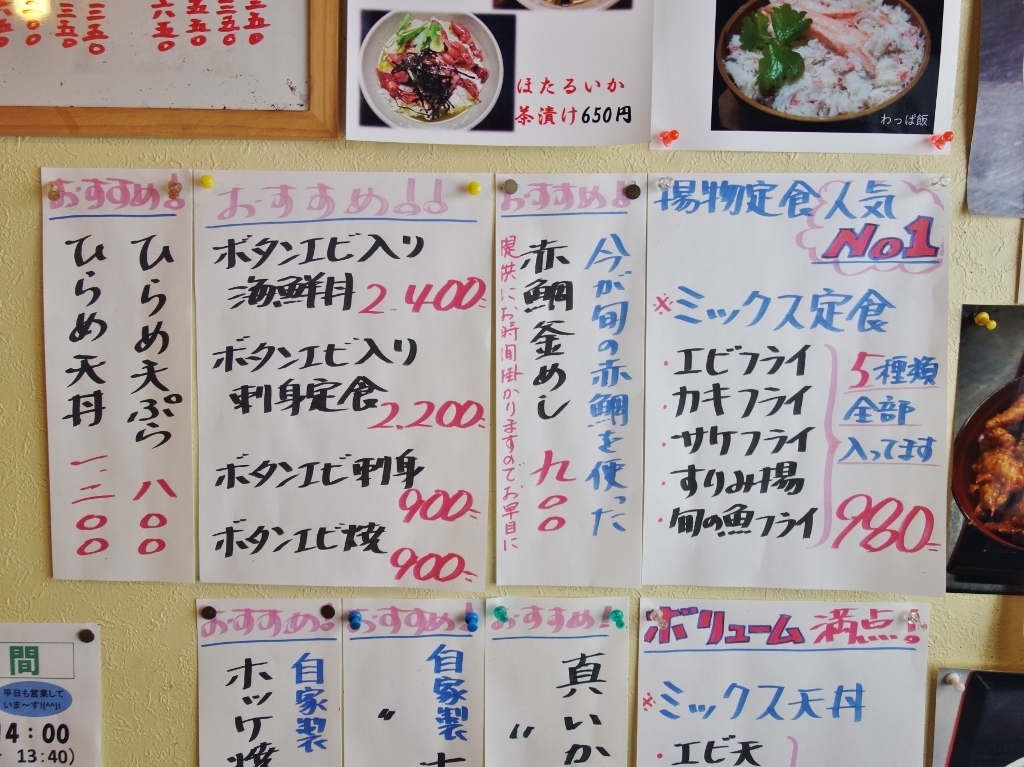 ほたるいか
茶漬け650円
わっぱ飯
おすすめ!
ひらめ天ぷら 八〇〇
ひらめ天丼 一、二〇〇
おすすめ!!
ボタンエビ入り
海鮮丼 2.400-
ボタンエビ入り
刺身定食 2.200-
ボタンエビ刺身
900-
ボタンエビ焼
900-
おすすめ!
今が旬の赤鯛を使った
赤鯛釜めし 九〇〇
提供にお時間掛かりますのでお早目に
揚物定食人気
No1
※ミックス定食
・エビフライ
・カキフライ
・サケフライ
・すりみ揚
・旬の魚フライ
5種類
全部
入ってます
980-
間
平日も営業して
いま〜す!(^^)!
14:00
13:40)
おすすめ。
自家製
ホッケ焼
おすすめ!
自家製
〃
おすすめ!
真いか
〃
ボリューム満点!
※ミックス天丼
・エビ天